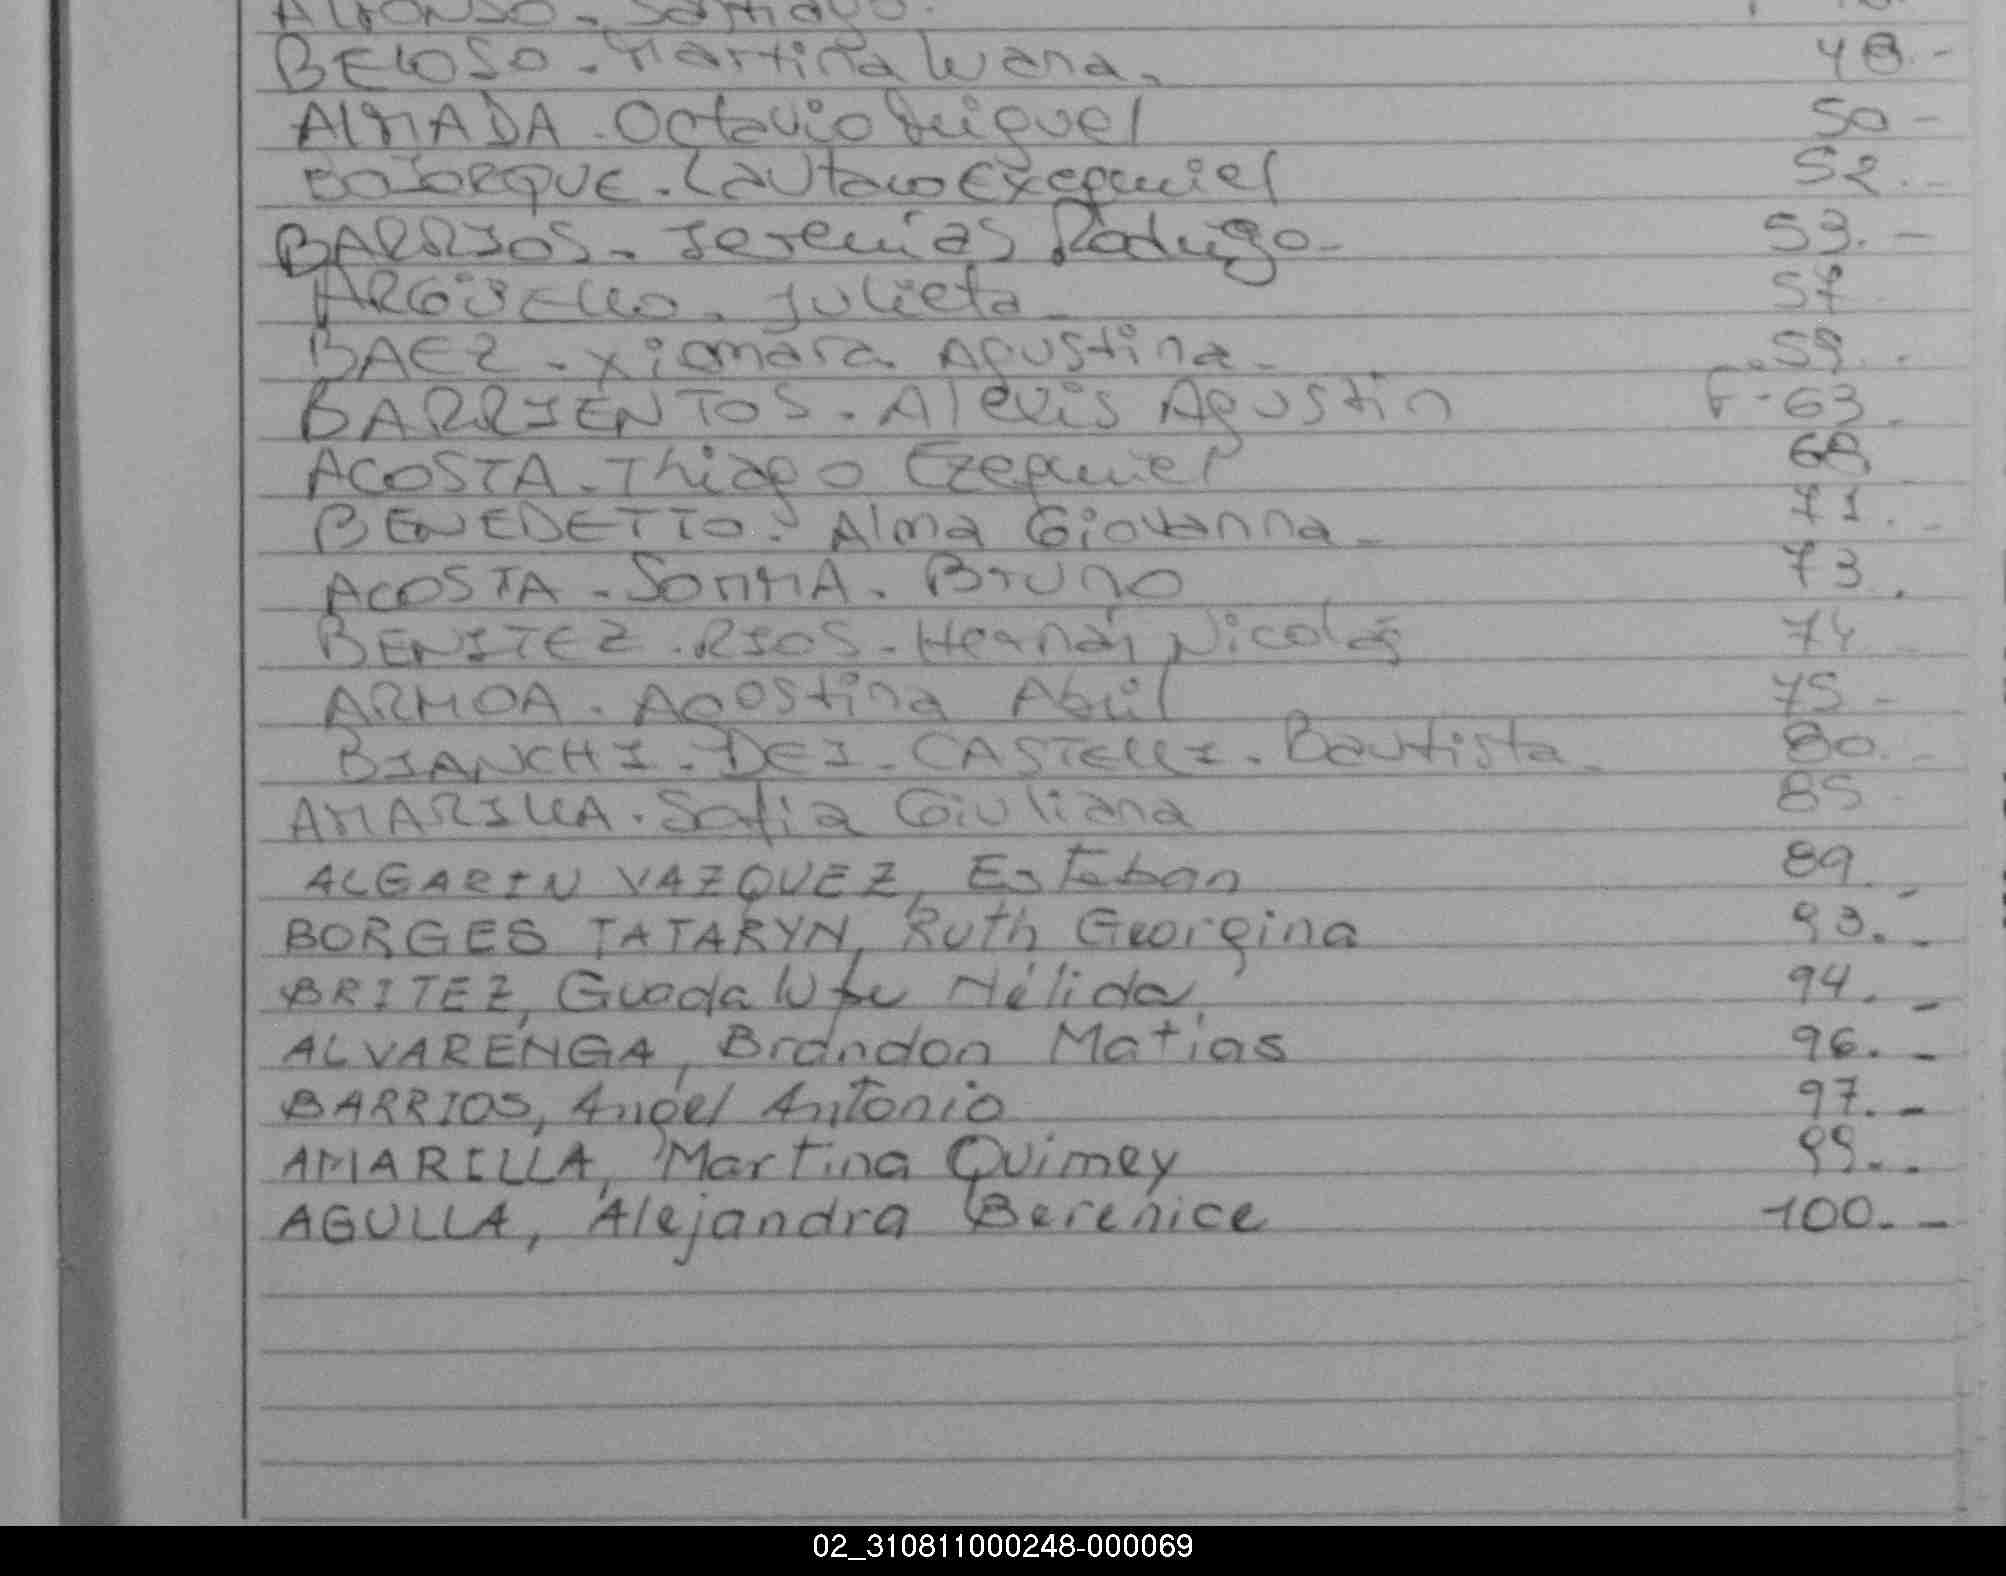 ALFONSO - Santiago.
BELOSO - Martina Luana - 48.-
ALMADA - Octavio Miguel 50 -
BOJORQUE - Lautaro Exequiel 52.-
BARRIOS - Jeremias Rodrigo - 53. -
ARGÜELLO - Julieta - 57
BAEZ - Xiomara Agustina - 59.
BARRIENTOS - Alexis Agustin F - 63
ACOSTA - Thiago Ezequiel 68
BENEDETTO. Alma Giovanna - 71. -
ACOSTA - SOMMA. Bruno 73.
BENITEZ. RIOS - Hernán Nicolás 74
ARMOA. Agostina Abril 75 -
BIANCHI - DEI - CASTELLI - Bautista - 80. -
AMARILLA. Sofia Giuliana 85
ALGARIN VAZQUEZ, Esteban 89. -
BORGES TATARYN, Ruth Georgina 93. -
BRITEZ, Guadalupe Nélida 94. -
ALVARENGA, Brandon Matias 96. -
BARRIOS, Angel Antonio 97. -
AMARILLA, Martina Quimey 99. -
AGULLA, Alejandra Berenice 100. -
02_310811000248-000069